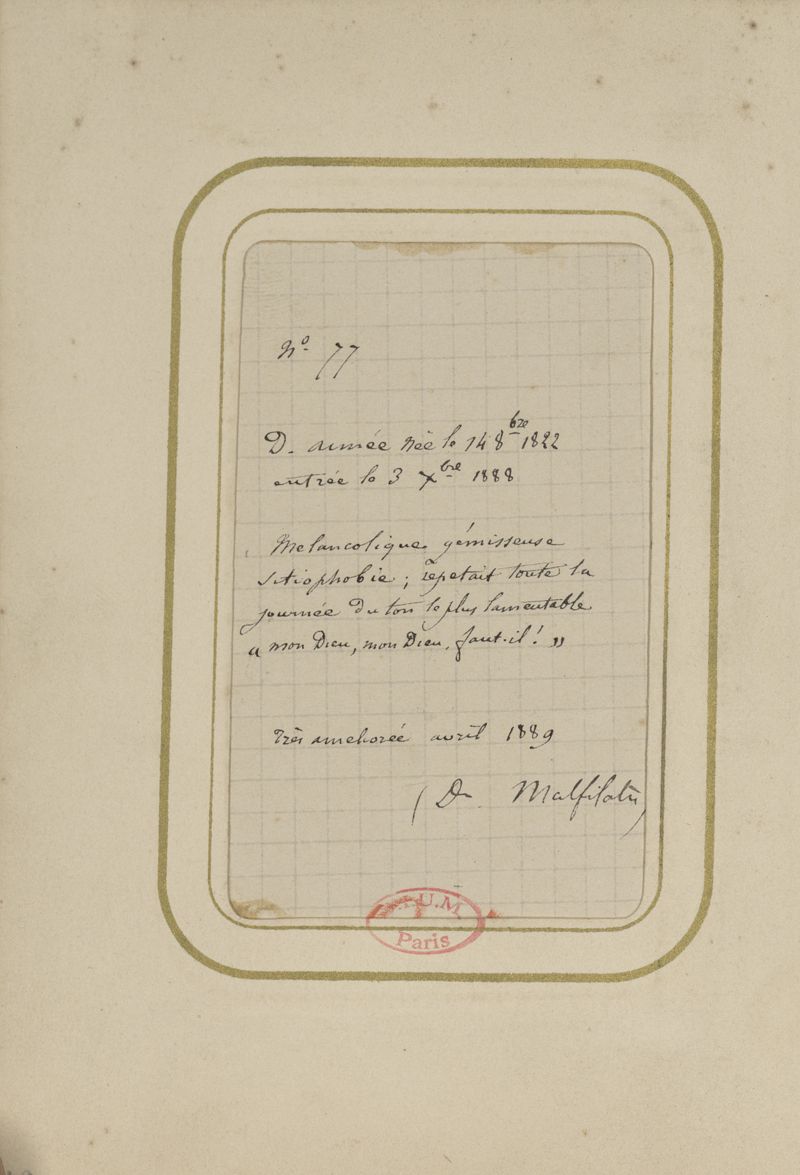 No 77
D. Aimée née le 14 8bre 1822
entrée le 3 Xbre 1888
Mélancolique gémisseuse
Sitiophobie ; répetait toute la
journée du ton le plus lamentable
« mon Dieu, mon Dieu, faut-il ! »
Très ameliorée avril 1889
(Dr Malfilatre)
U.M.
Paris